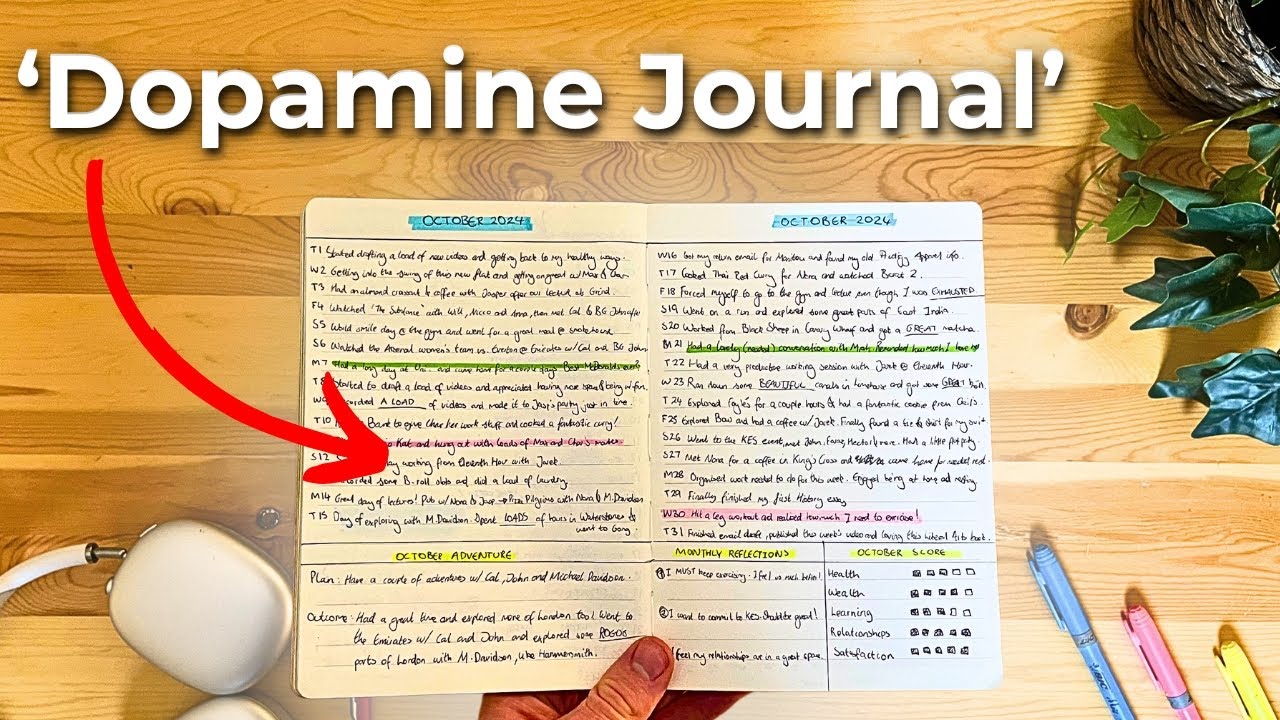 ‘Dopamine Journal’
OCTOBER 2024
T1 Started drafting a load of new videos and getting back to my healthy ways.
W2 Getting into the swing of this new flat and getting on great w/ Max & Char.
T3 Had an almond croissant & coffee with Jasper after our lecture at Grind.
F4 Watched 'The Substance' with Will, Nicco and Anna, then met Cal & BG John after
S5 World smile day @ the gym and went for a great meal @
S6 Watched the Arsenal women's team vs. Everton @ Emirates w/ Cal and BG John
M7 Had a long day at Uni and came home for a cosy
T8 Started to draft a load of videos and appreciated having
W9 Recorded A LOAD of videos and made it to party just in time.
T10 to give Char her work stuff and cooked a fantastic curry!
Kat and hung out with loads of Max and Char's mates.
S12 day working from Eleventh Hour with Jack.
Recorded some B-roll and did a load of laundry.
M14 Great day of lectures! Pub w/ Nora & → Pizza Pilgrims with Nora & M. Davidson
T15 Day of exploring with M. Davidson. Spent LOADS of hours in Waterstones &
went to
OCTOBER ADVENTURE
Plan: Have a couple of adventures w/ Cal, John and Michael Davidson.
Outcome: Had a great time and explored more of London too! Went to
the Emirates w/ Cal and John and explored some
parts of London with M. Davidson, like Hammersmith.
OCTOBER 2024
W16 Got my return email for and found my old Apparel info.
T17 Cooked Thai Red Curry for Nora and watched Borat 2.
F18 Forced myself to go to the gym and lecture even though I was EXHAUSTED.
S19 Went on a run and explored some great parts of East India.
S20 Worked from Black Sheep in Canary Wharf and got a GREAT matcha.
M21 Had a lovely (needed) conversation with Reminded how much I love
T22 Had a very productive working session with Jack @ Eleventh Hour.
W23 Ran down some BEAUTIFUL canals in Limehouse and got some GREAT
T24 Explored for a couple hours & had a fantastic cookie from
F25 Explored and had a coffee w/ Jack. Finally found a tie & shirt for my suit.
S26 Went to the KES event, met John, Hector & more. Had a little pity party.
S27 Met Nora for a coffee in King's Cross and came home for needed rest.
M28 Organised work needed to do this week. Enjoyed being at home and resting.
T29 Finally finished my first History essay.
W30 Hit a leg workout and realised how much I need to exercise!
T31 Finished email draft, published this week's video and loving this Liberal Arts book.
MONTHLY REFLECTIONS
① I MUST keep exercising. I feel so much better!
② I want to commit to KES. Should be great!
I feel my relationships are in a great space.
OCTOBER SCORE
Health
Wealth
Learning
Relationships
Satisfaction